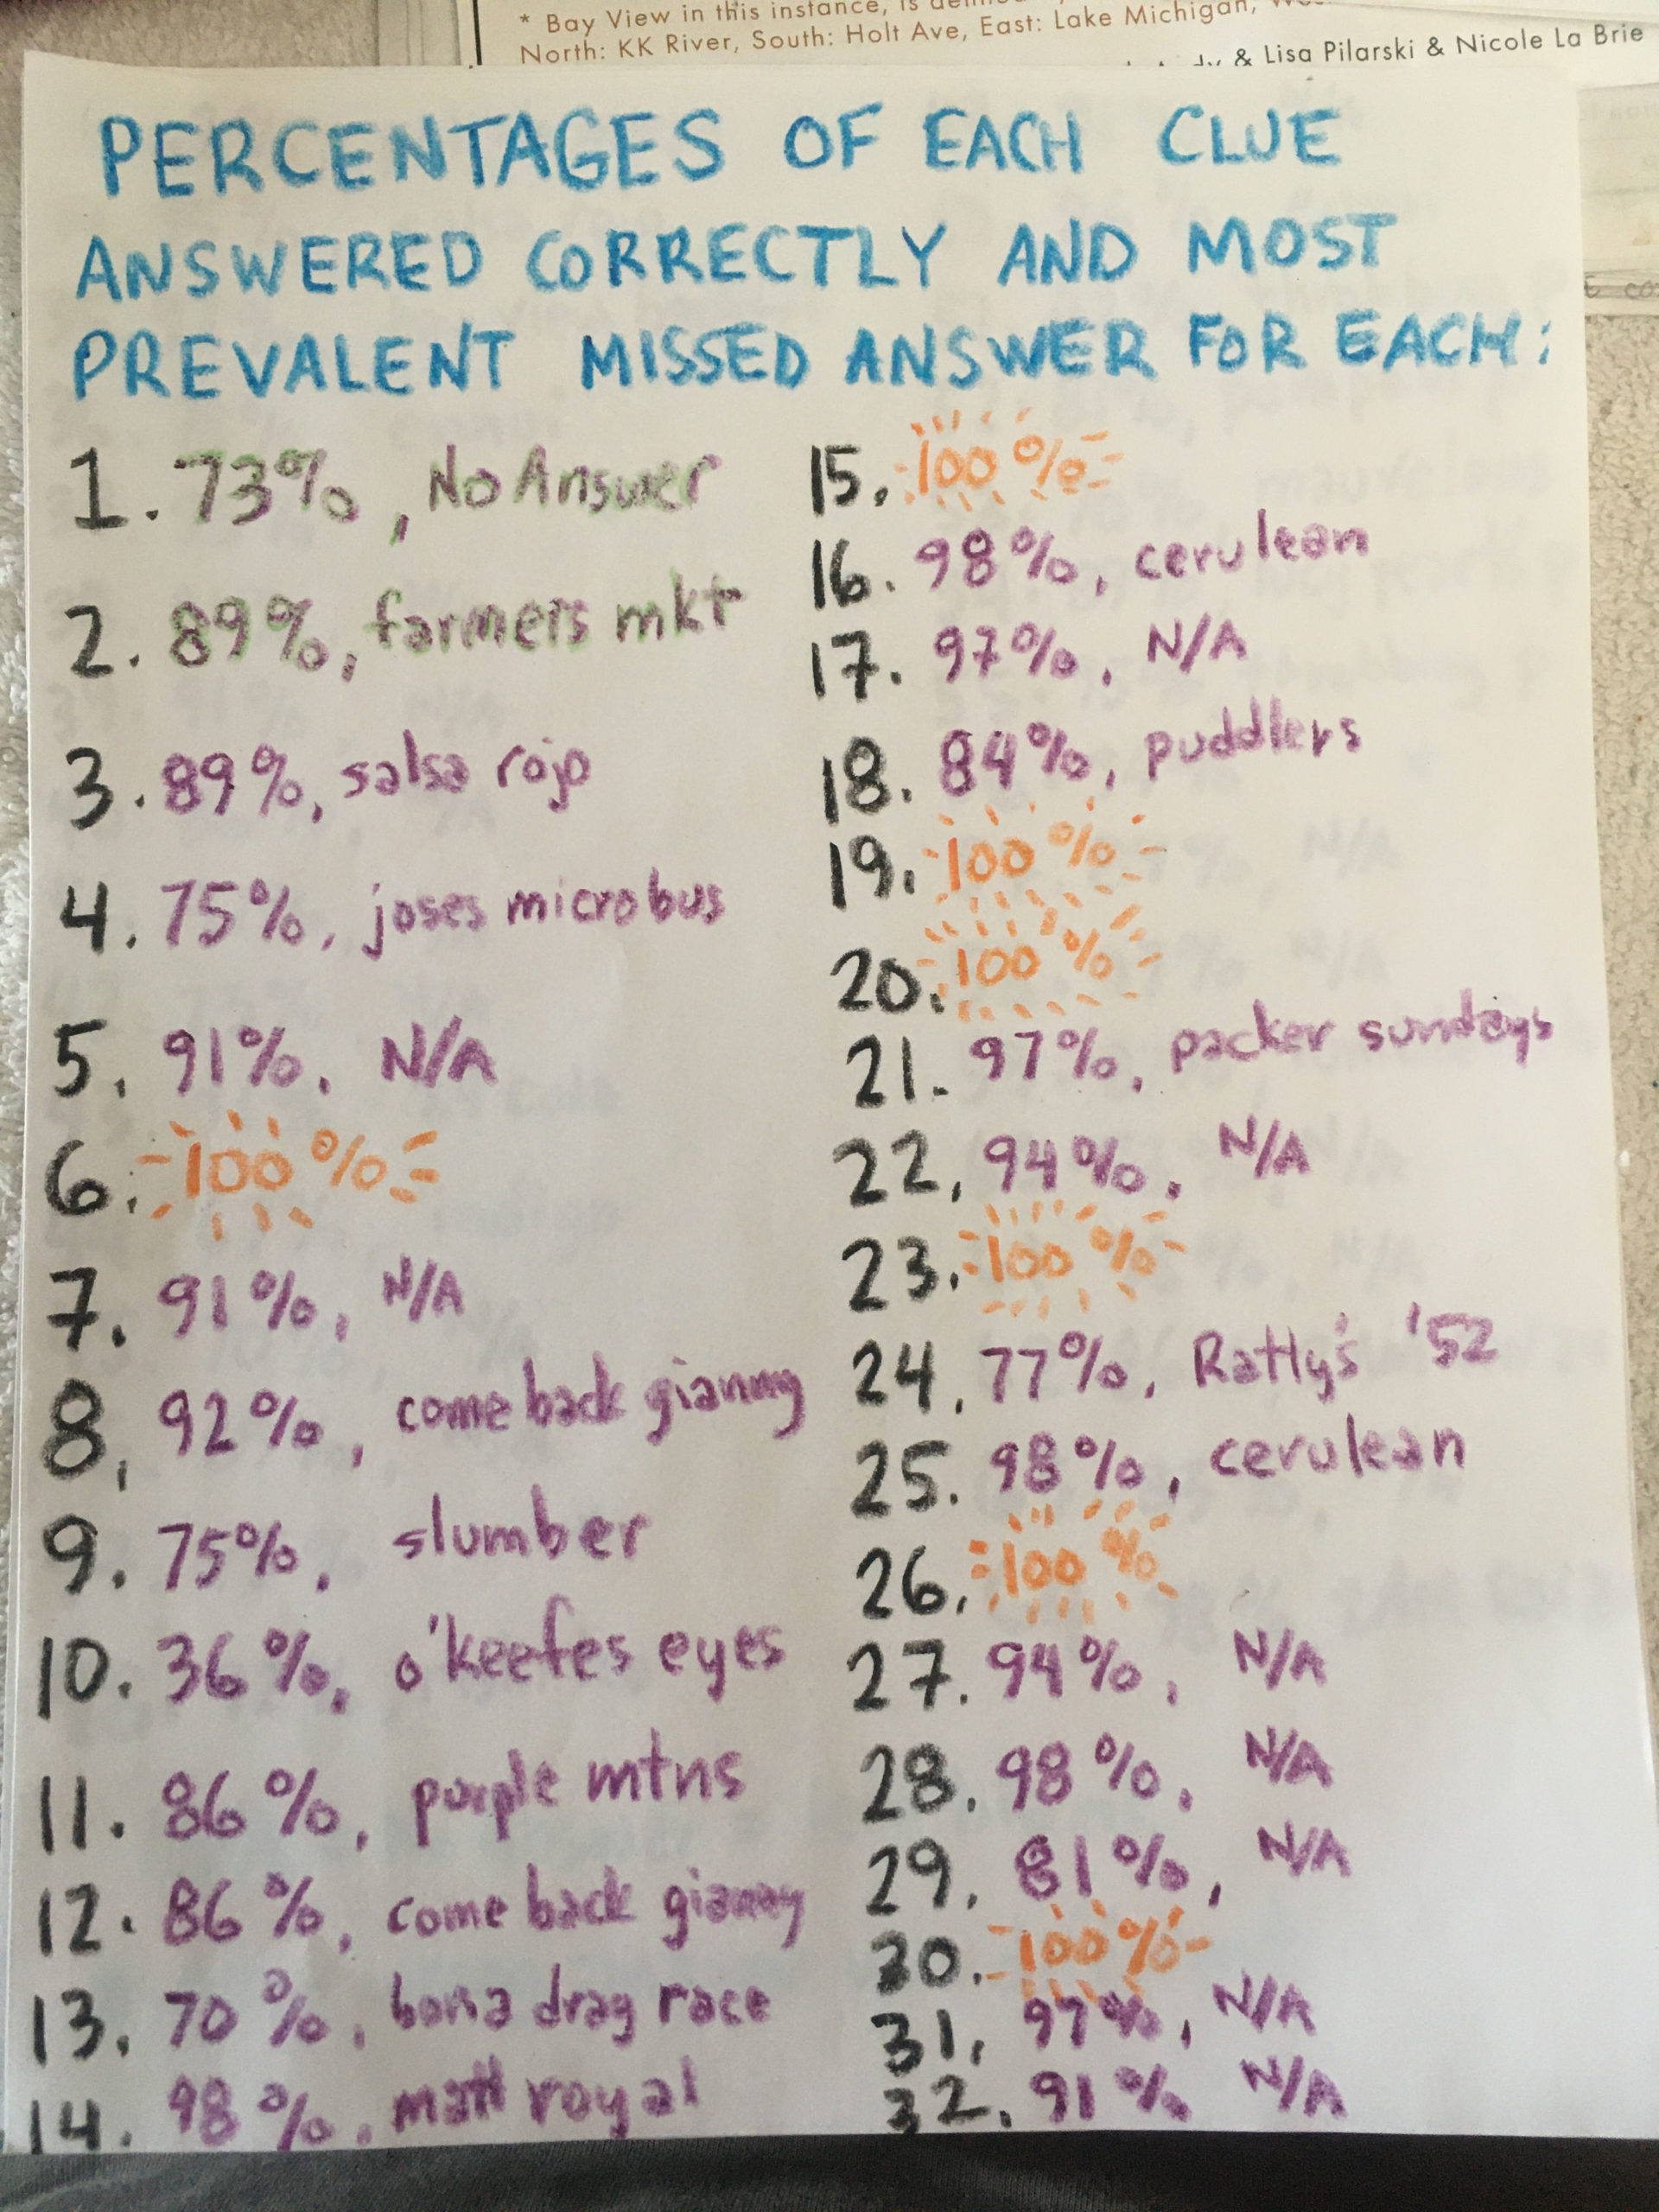 * Bay View in this instance, is
North: KK River, South: Holt Ave, East: Lake Michigan,
& Lisa Pilarski & Nicole La Brie
PERCENTAGES OF EACH CLUE
ANSWERED CORRECTLY AND MOST
PREVALENT MISSED ANSWER FOR EACH:
1. 73%, No Answer
2. 89%, farmers mkt
3. 89%, salsa rojo
4. 75%, joses microbus
5. 91%, N/A
6. 100%
7. 91%, N/A
8. 92%, come back gianny
9. 75%, slumber
10. 36%, o'keefes eyes
11. 86%, purple mtns
12. 86%, come back gianny
13. 70%, bona drag race
14. 98%, matt royal
15. 100%
16. 98%, cerulean
17. 97%, N/A
18. 84%, puddlers
19. 100%
20. 100%
21. 97%, packer sundays
22. 94%, N/A
23. 100%
24. 77%, Rattys '52
25. 98%, cerulean
26. 100%
27. 94%, N/A
28. 98%, N/A
29. 81%, N/A
30. 100%
31. 97%, N/A
32. 91% N/A